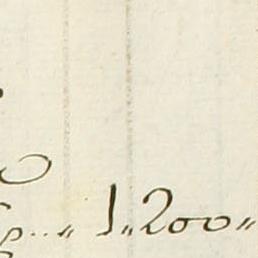 1„200„